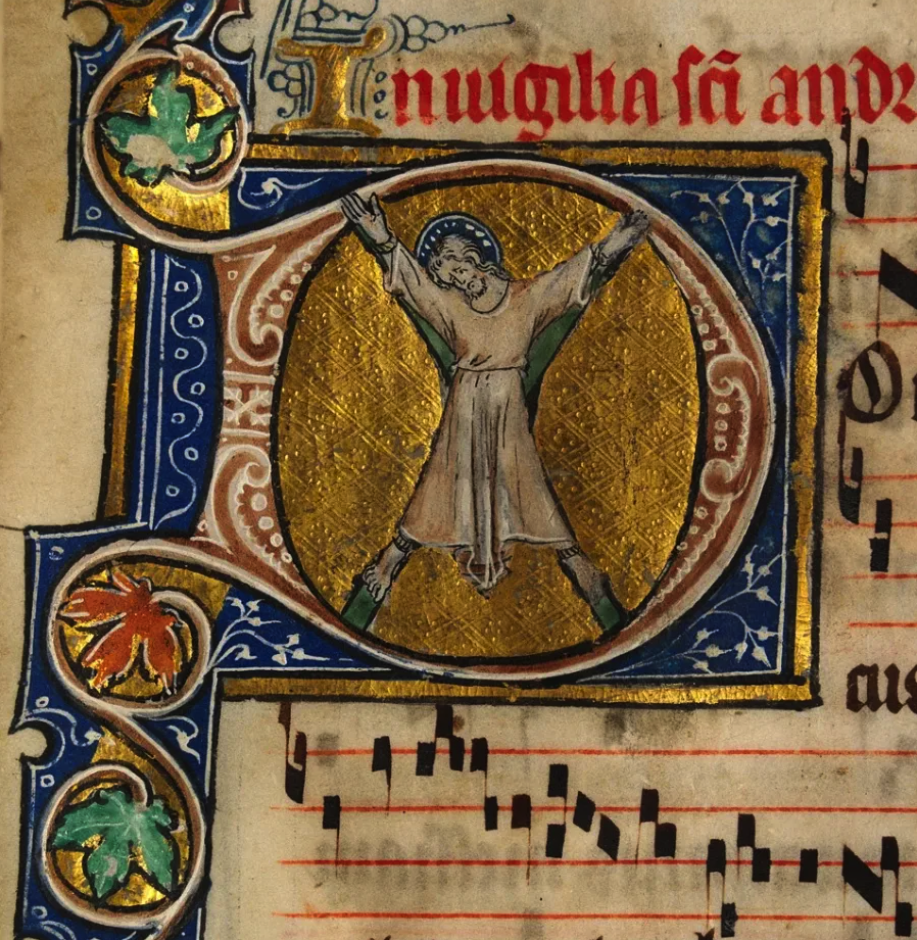 In uigilia sc̄i andr
D
O
cus